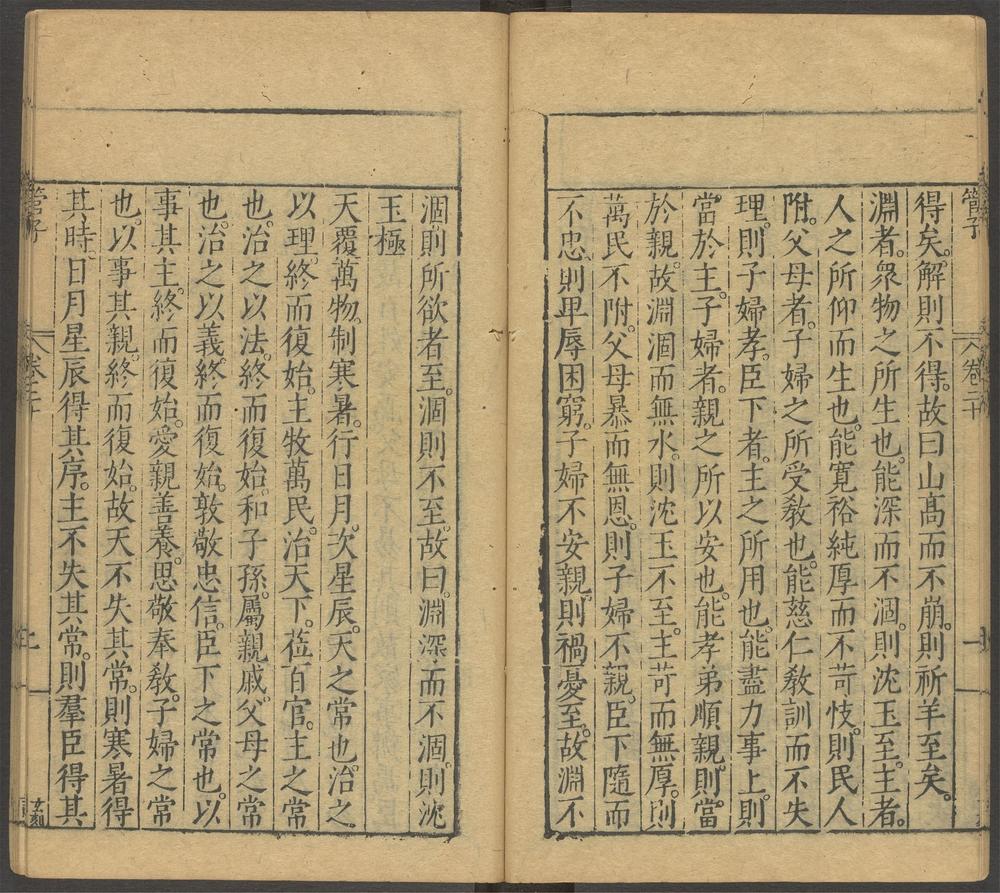 管子
卷二十
得矣。解則不得。故曰山髙而不崩。則祈羊至矣。
淵者。衆物之所生也。能深而不涸。則沈玉至。主者。
人之所仰而生也。能寛裕純厚而不苛忮。則民人
附。父母者。子婦之所受敎也。能慈仁敎訓而不失
理。則子婦孝。臣下者。主之所用也。能盡力事上。則
當於主。子婦者。親之所以安也。能孝弟順親。則當
於親。故淵涸而無水。則沈玉不至。主苛而無厚。則
萬民不附。父母暴而無恩。則子婦不親。臣下隨而
不忠。則卑辱困窮。子婦不安親。則禍憂至。故淵不
涸。則所欲者至。涸則不至。故曰。淵深而不涸。則沈
玉極
天覆萬物。制寒暑。行日月。次星辰。天之常也。治之
以理。終而復始。主牧萬民。治天下。莅百官。主之常
也。治之以法。終而復始。和子孫。屬親戚。父母之常
也。治之以義。終而復始。敦敬忠信。臣下之常也。以
事其主。終而復始。愛親善養。思敬奉敎。子婦之常
也。以事其親。終而復始。故天不失其常。則寒暑得
其時。日月星辰得其序。主不失其常。則羣臣得其
管子
卷二十